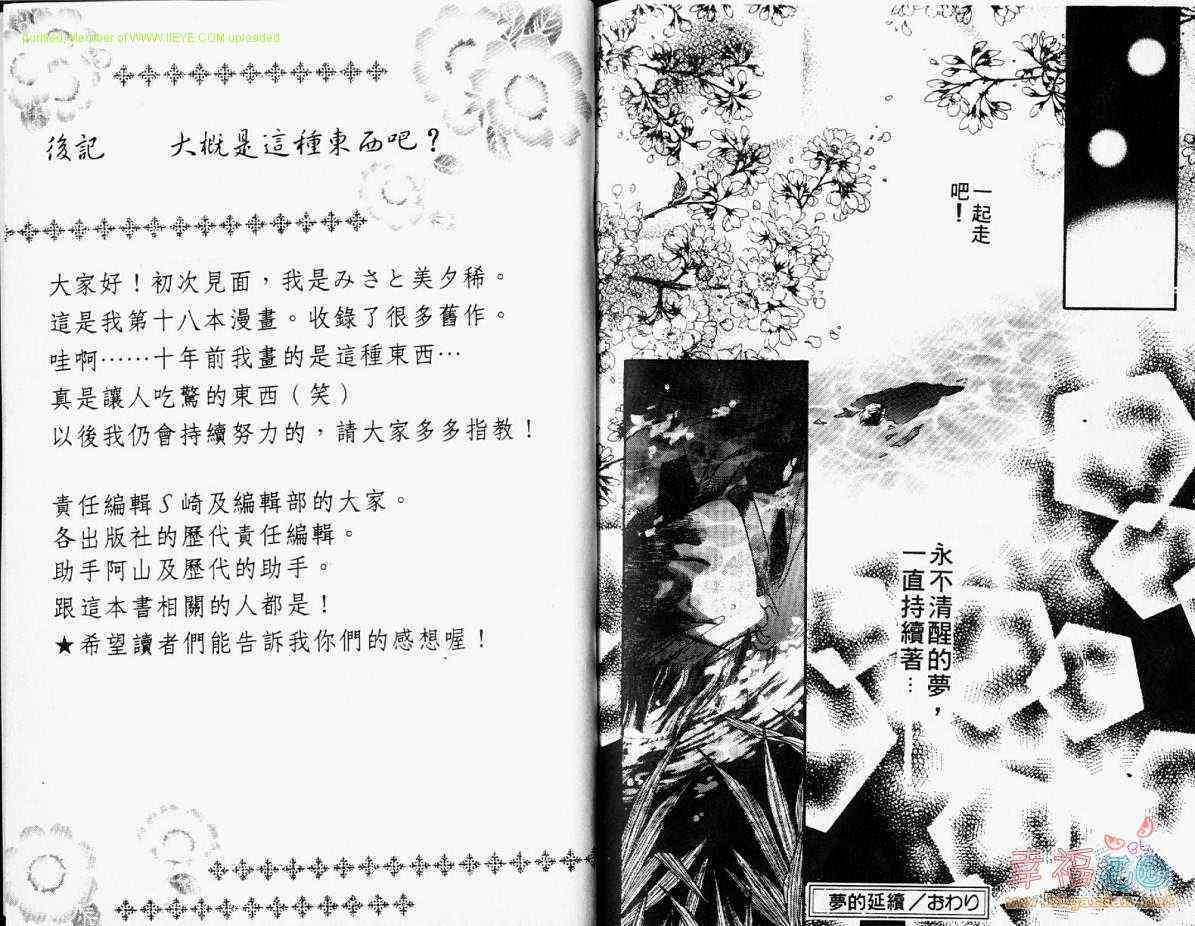 一起走
吧！
永不清醒的夢，
一直持續著…
夢的延續／おわり
幸福花園
後記　　大概是這種東西吧？
大家好！初次見面，我是みさと美夕稀。
這是我第十八本漫畫。收錄了很多舊作。
哇啊⋯⋯十年前我畫的是這種東西⋯
真是讓人吃驚的東西（笑）
以後我仍會持續努力的，請大家多多指教！
責任編輯S崎及編輯部的大家。
各出版社的歷代責任編輯。
助手阿山及歷代的助手。
跟這本書相關的人都是！
★希望讀者們能告訴我你們的感想喔！
Member of WWW.IIEYE.COM uploaded